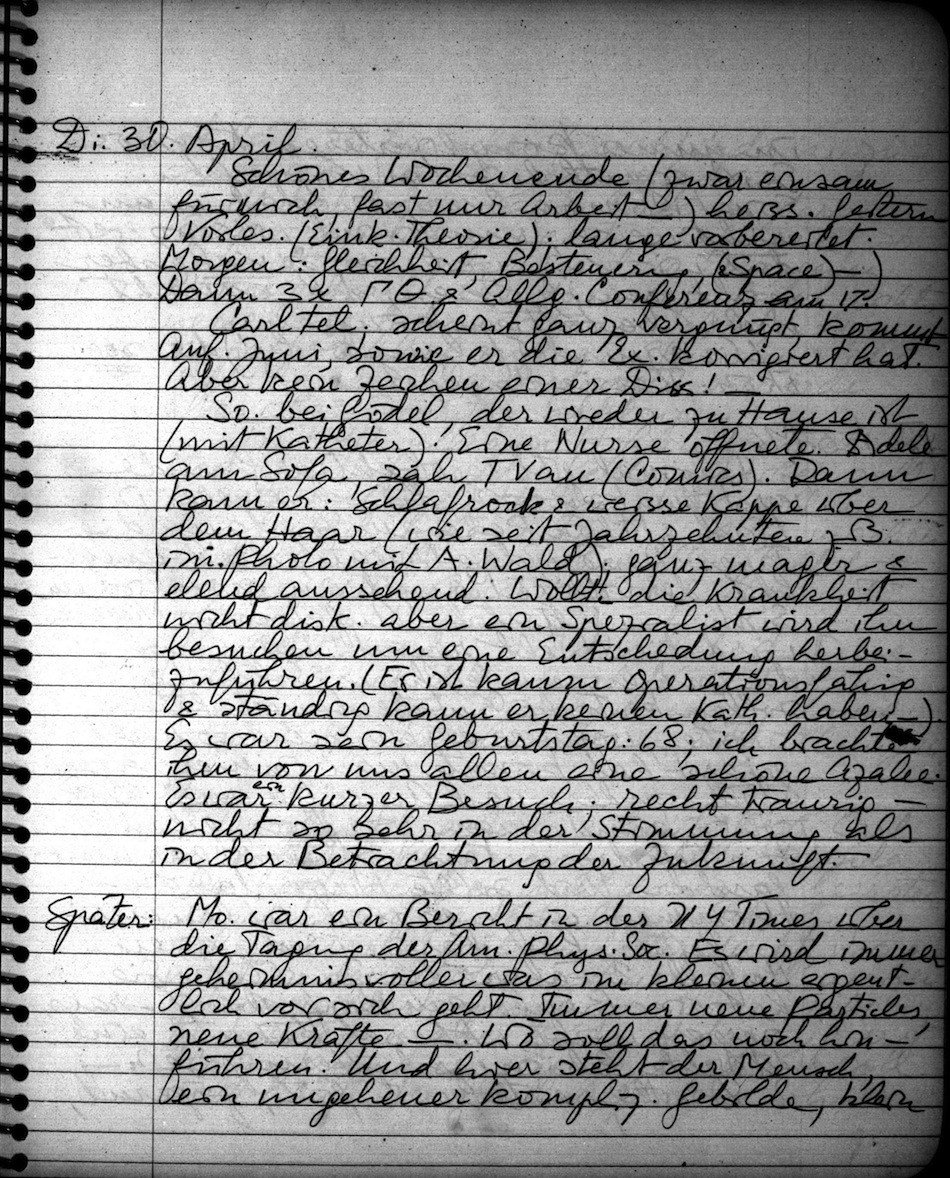 Di. 30. April.
Schönes Wochenende (zwar einsam
für mich, fast nur Arbeit —) heiss. Gestern
Vorles. (Eink. Theorie); lange vorbereitet.
Morgen: Gleichheit, Besteuerung, (& Space) —)
Dann 3 x Γ Θ & Allg. Conferenz am 17.)
Carl tel. scheint ganz vergnügt, kommt
Anf. Juni, sowie er die Ex. korrigiert hat.
Aber kein Zeichen einer Diss! —
So. bei Gödel, der wieder zu Hause ist
(mit Katheter). Eine Nurse öffnete. Adele
am Sofa, sah TV an (Comics). Dann
kam er: Schlafrock & weisse Kappe über
dem Haar (wie seit Jahrzehnten z.B.
im Photo mit A. Wald); ganz mager &
elend aussehend. Wollte die Krankheit
nicht disk. aber ein Spezialist wird ihn
besuchen um eine Entscheidung herbei-
zuführen. (Er ist kaum operationsfähig
& ständig kann er keinen Kath. haben —)
Es war sein Geburtstag: 68; ich brachte
ihm von uns allen eine schöne Azalee.
Es war ein kurzer Besuch; recht traurig —
nicht so sehr in der Stimmung als
in der Betrachtung der Zukunft. —
Später: Mo. war ein Bericht in der NY Times über
die Tagung der Am. Phys. Soc. Es wird immer
geheimnisvoller was im kleinen eigent-
lich vor sich geht. Immer neue Particles,
neue Kräfte —. Wo soll das noch hin-
führen. Und hier steht der Mensch,
ein ungeheuer kompliz. Gebilde, klein